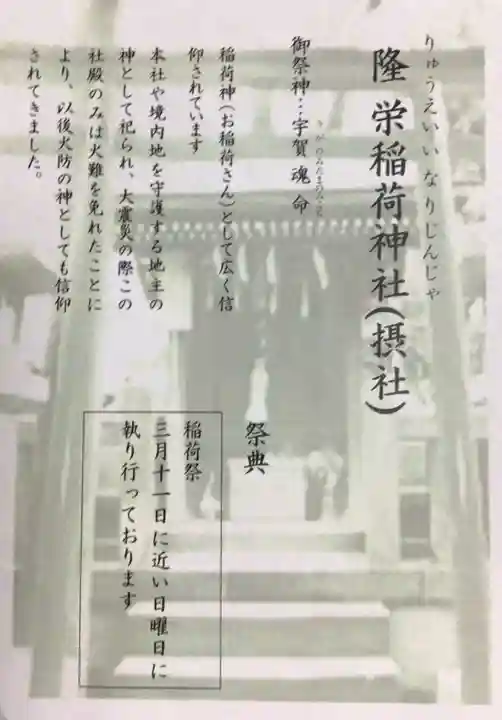 りゅうえいいなりじんじゃ
隆栄稲荷神社(摂社)
うかのみたまのみこと
御祭神…宇賀魂命
稲荷神(お稲荷さん)として広く信
仰されています
本社や境内地を守護する地主の
神として祀られ、大震災の際この
社殿のみは火難を免れたことに
より、以後火防の神としても信仰
されてきました。
祭典
稲荷祭
三月十一日に近い日曜日に
執り行っております